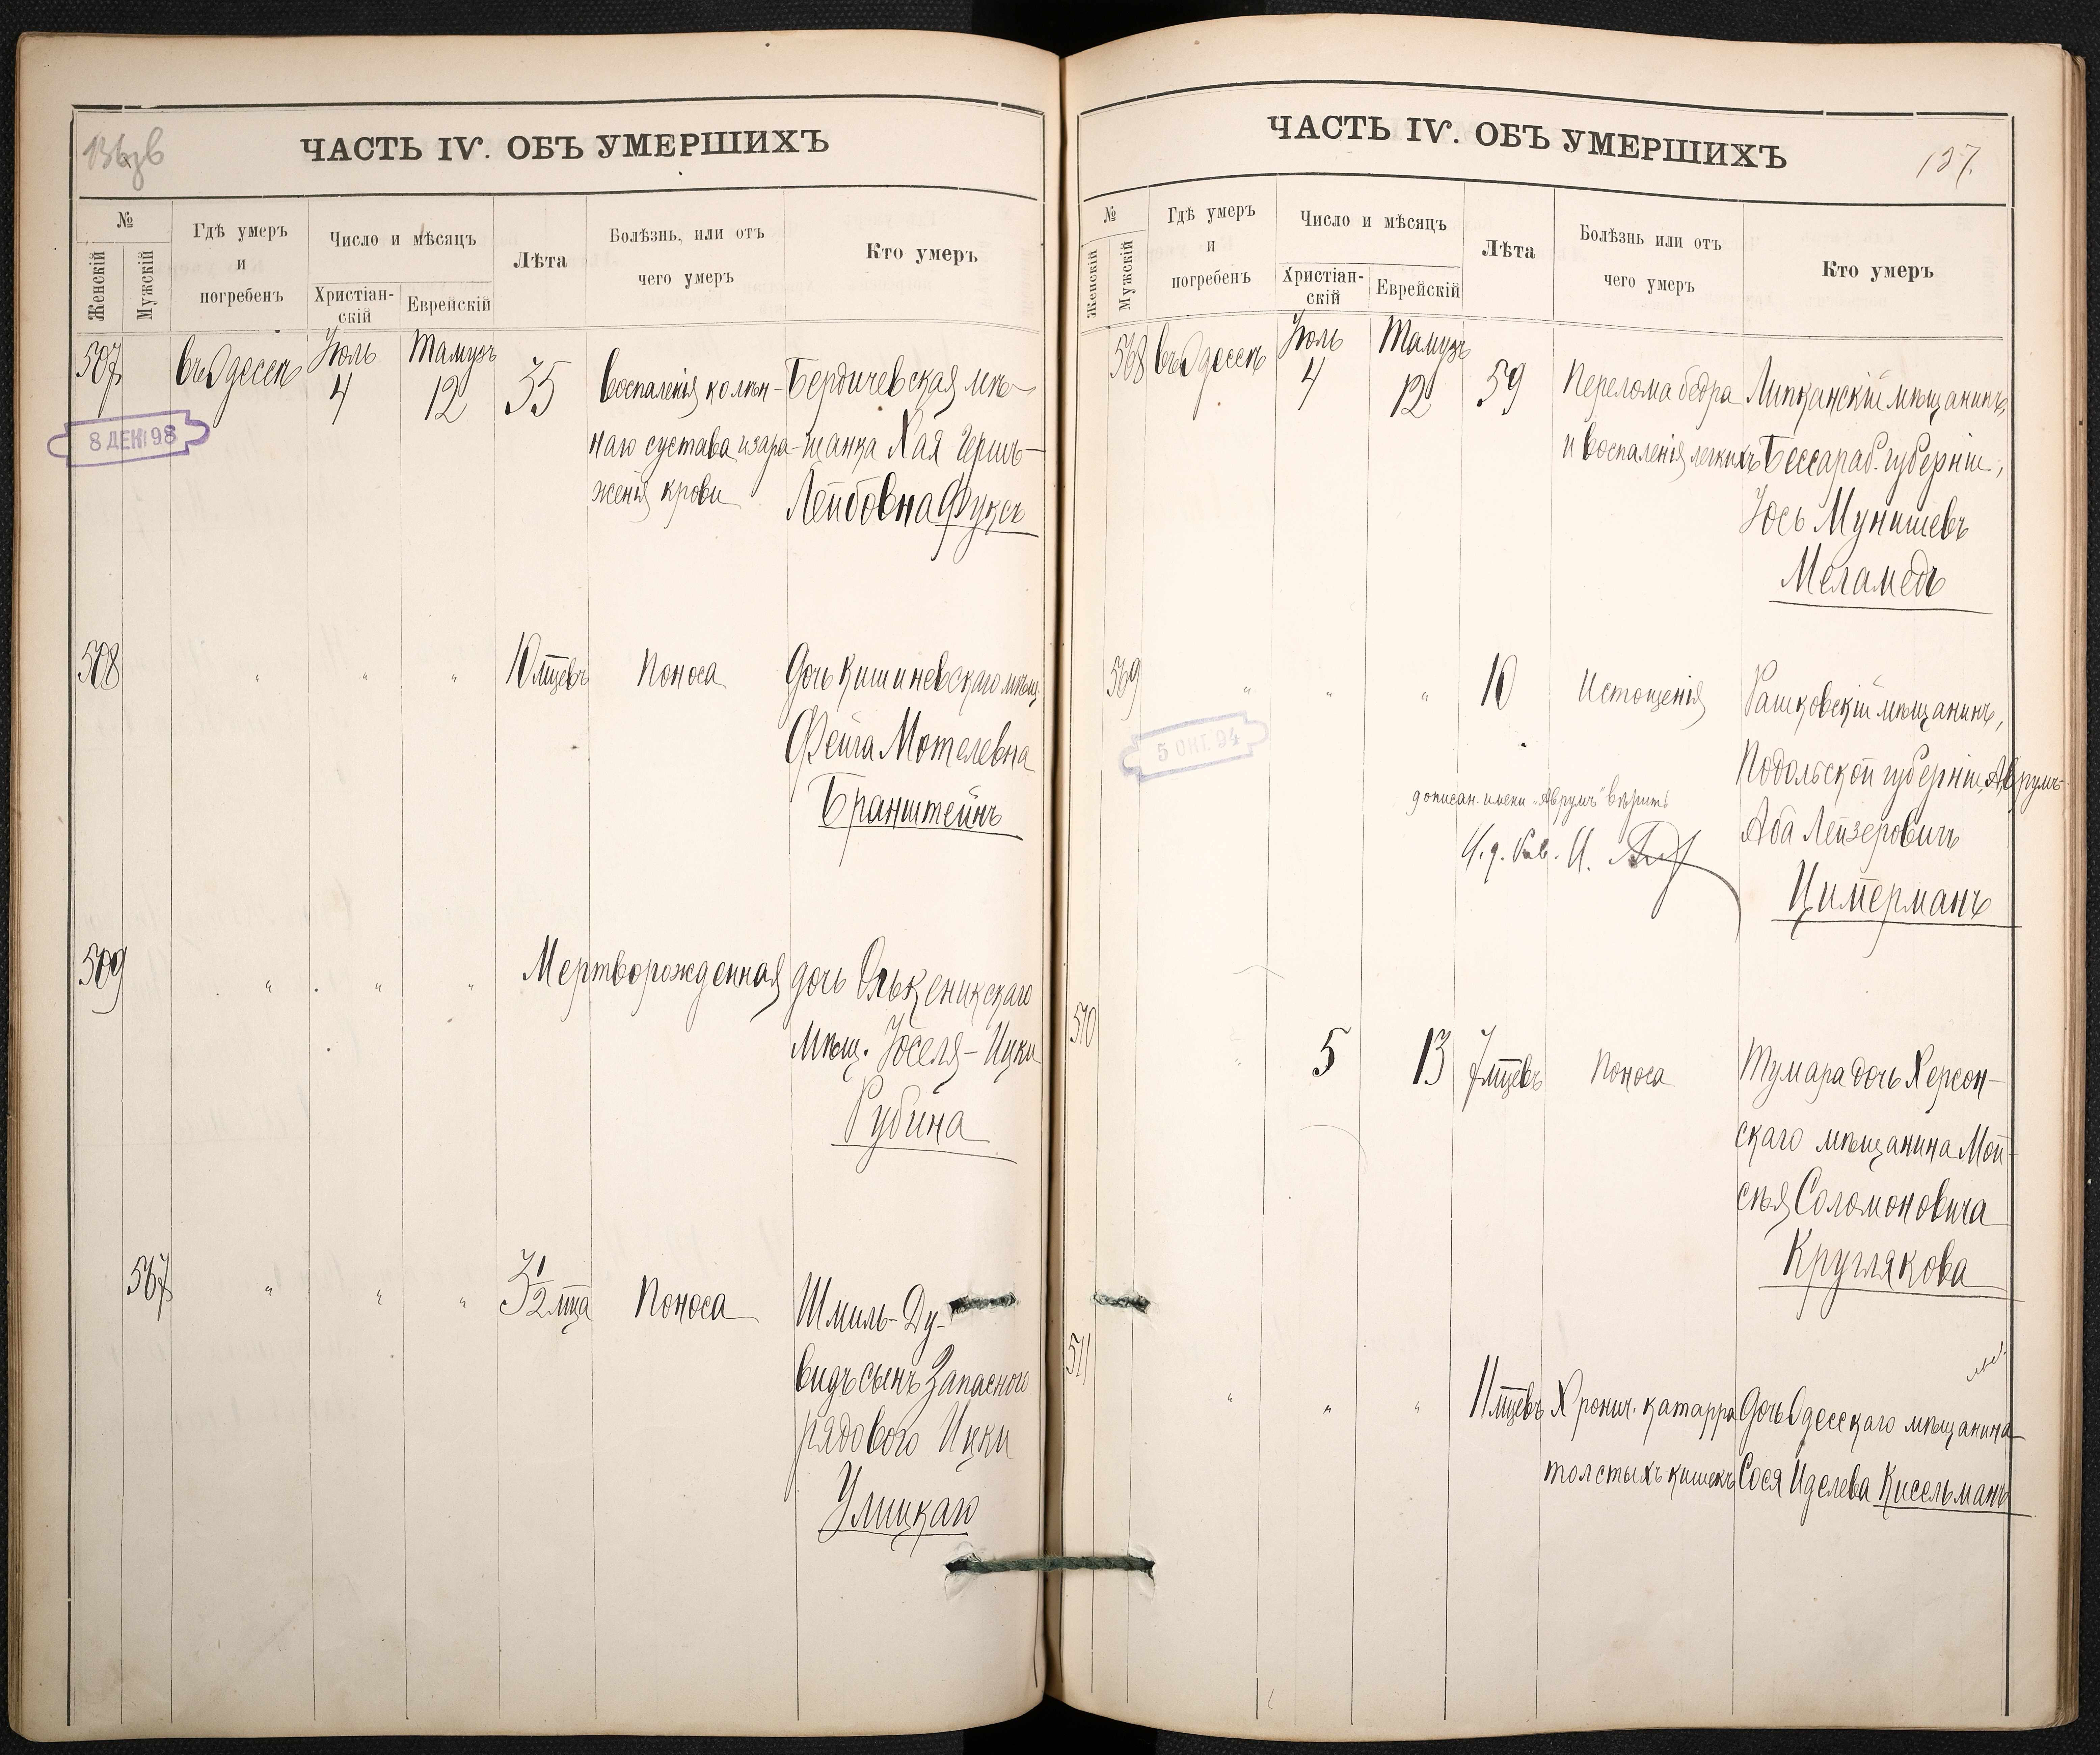 ЧАСТЬ IV. ОБЪ УМЕРШИХЪ
№
Женскій
Мужскій
Гдѣ умеръ
и
погребенъ
Число и мѣсяцъ
Христіан-
скій
Еврейскій
Лѣта
Болѣзнь, или отъ
чего умеръ
Кто умеръ
507
въ Одессѣ
Іюль
4
Тамузъ
12
35
Воспаленія колѣн-
наго сустава и зара-
женія крови
Бердичевская мѣ-
щанка Хая Гершъ-
Лейбовна Фуксъ
8 ДЕК 98
508
" " "
10 мцевъ
Поноса
Дочь Кишиневскаго мѣщ.
Фейга Мотелевна
Бранштейнъ
509
" " "
Мертворожденная дочь Олькеникскаго
мѣщ. Іоселя-Ицки
Рубина
567
" " "
3 1/2 мца
Поноса
Шмиль-Ду-
видъ сынъ Запасного
рядового Ицки
Улицкаго
ЧАСТЬ IV. ОБЪ УМЕРШИХЪ
137.
№
Женскій
Мужскій
Гдѣ умеръ
и
погребенъ
Число и мѣсяцъ
Христіан-
скій
Еврейскій
Лѣта
Болѣзнь или отъ
чего умеръ
Кто умеръ
568
въ Одессѣ
Іюль
4
Тамузъ
12
59
Перелома бедра
и воспаленія легкихъ
Липканскій мѣщанинъ,
Бессараб. губерніи,
Іось Мунишевъ
Меламедъ
569
" " "
10
Истощенія
Рашковскій мѣщанинъ,
Подольской губерніи, Аврумъ-
Аба Лейзеровичъ
Цимерманъ
5 ОКТ. 94
дописан. имени "Аврумъ" вѣрить
И. д. Рав. И.
510
"
5
13
7 мцевъ
Поноса
Тумара дочь Херсон-
скаго мѣщанина Мои-
сѣя Соломоновича
Круглякова
511
" " "
11 мцевъ
Хронич. катарра
толстыхъ кишекъ
Дочь Одесскаго мѣщанина
Сося Иделева Кисельманъ